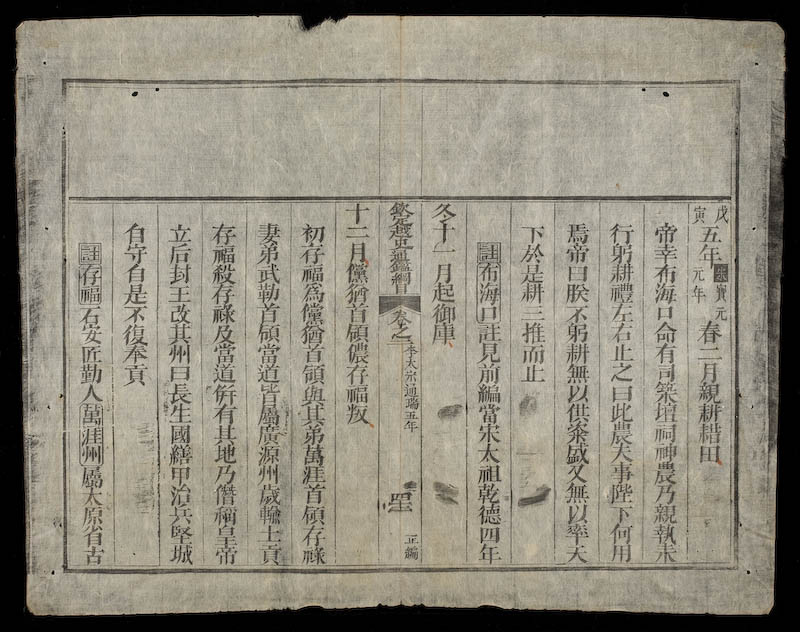 戊寅五年宋寳元元年春二月親耕耤田
帝幸布海口命有司築壇祠神農乃親執耒
行躬耕禮左右止之曰此農夫事陛下何用
焉帝曰朕不躬耕無以供粢盛又無以率天
下於是耕三推而止
註布海口註見前編當宋太祖乾德四年
冬十一月起御庫
欽定越史通鑑綱目
卷之
李太宗通瑞五年
正編
十二月儻猶首領儂存福叛
初存福爲儻猶首領與其弟萬涯首領存祿
妻弟武勒首領當道皆屬廣源州歲輸土貢
存福殺存祿及當道併有其地乃僭稱皇帝
立后封王改其州曰長生國繕甲治兵堅城
自守自是不復奉貢
註存福石安匠勤人萬涯州屬太原省古